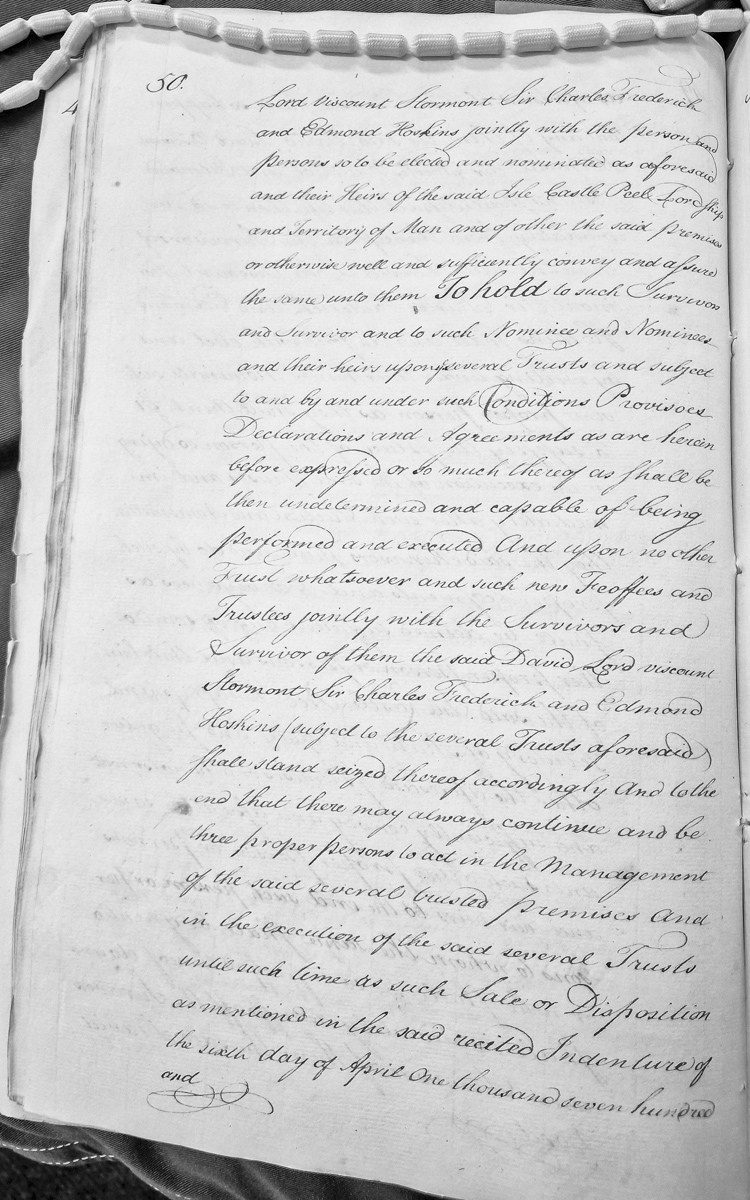 50.
Lord Viscount Stormont Sir Charles Frederick
and Edmond Hoskins jointly with the person and
persons so to be elected and nominated as aforesaid
and their Heirs of the said Isle Castle Peele Lordship
and Territory of Man and of other the said premises
or otherwise well and sufficiently convey and assure
the same unto them To hold to such Survivors
and Survivor and to such Nominee and Nominees
and their heirs upon ye several Trusts and subject
to and by and under such Conditions Provisoes
Declarations and Agreements as are herein
before expressed or so much thereof as shall be
then undetermined and capable of being
performed and executed And upon no other
Trust whatsoever and such new Feoffees and
Trustees jointly with the Survivors and
Survivor of them the said David Lord viscount
Stormont Sir Charles Frederick and Edmond
Hoskins (subject to the several Trusts aforesaid)
shall stand seized thereof accordingly And to the
end that there may always continue and be
three proper persons to act in the Management
of the said several trusted premises And
in the execution of the said several Trusts
until such time as such Sale or Disposition
as mentioned in the said recited Indenture of
the sixth day of April One thousand seven hundred
and